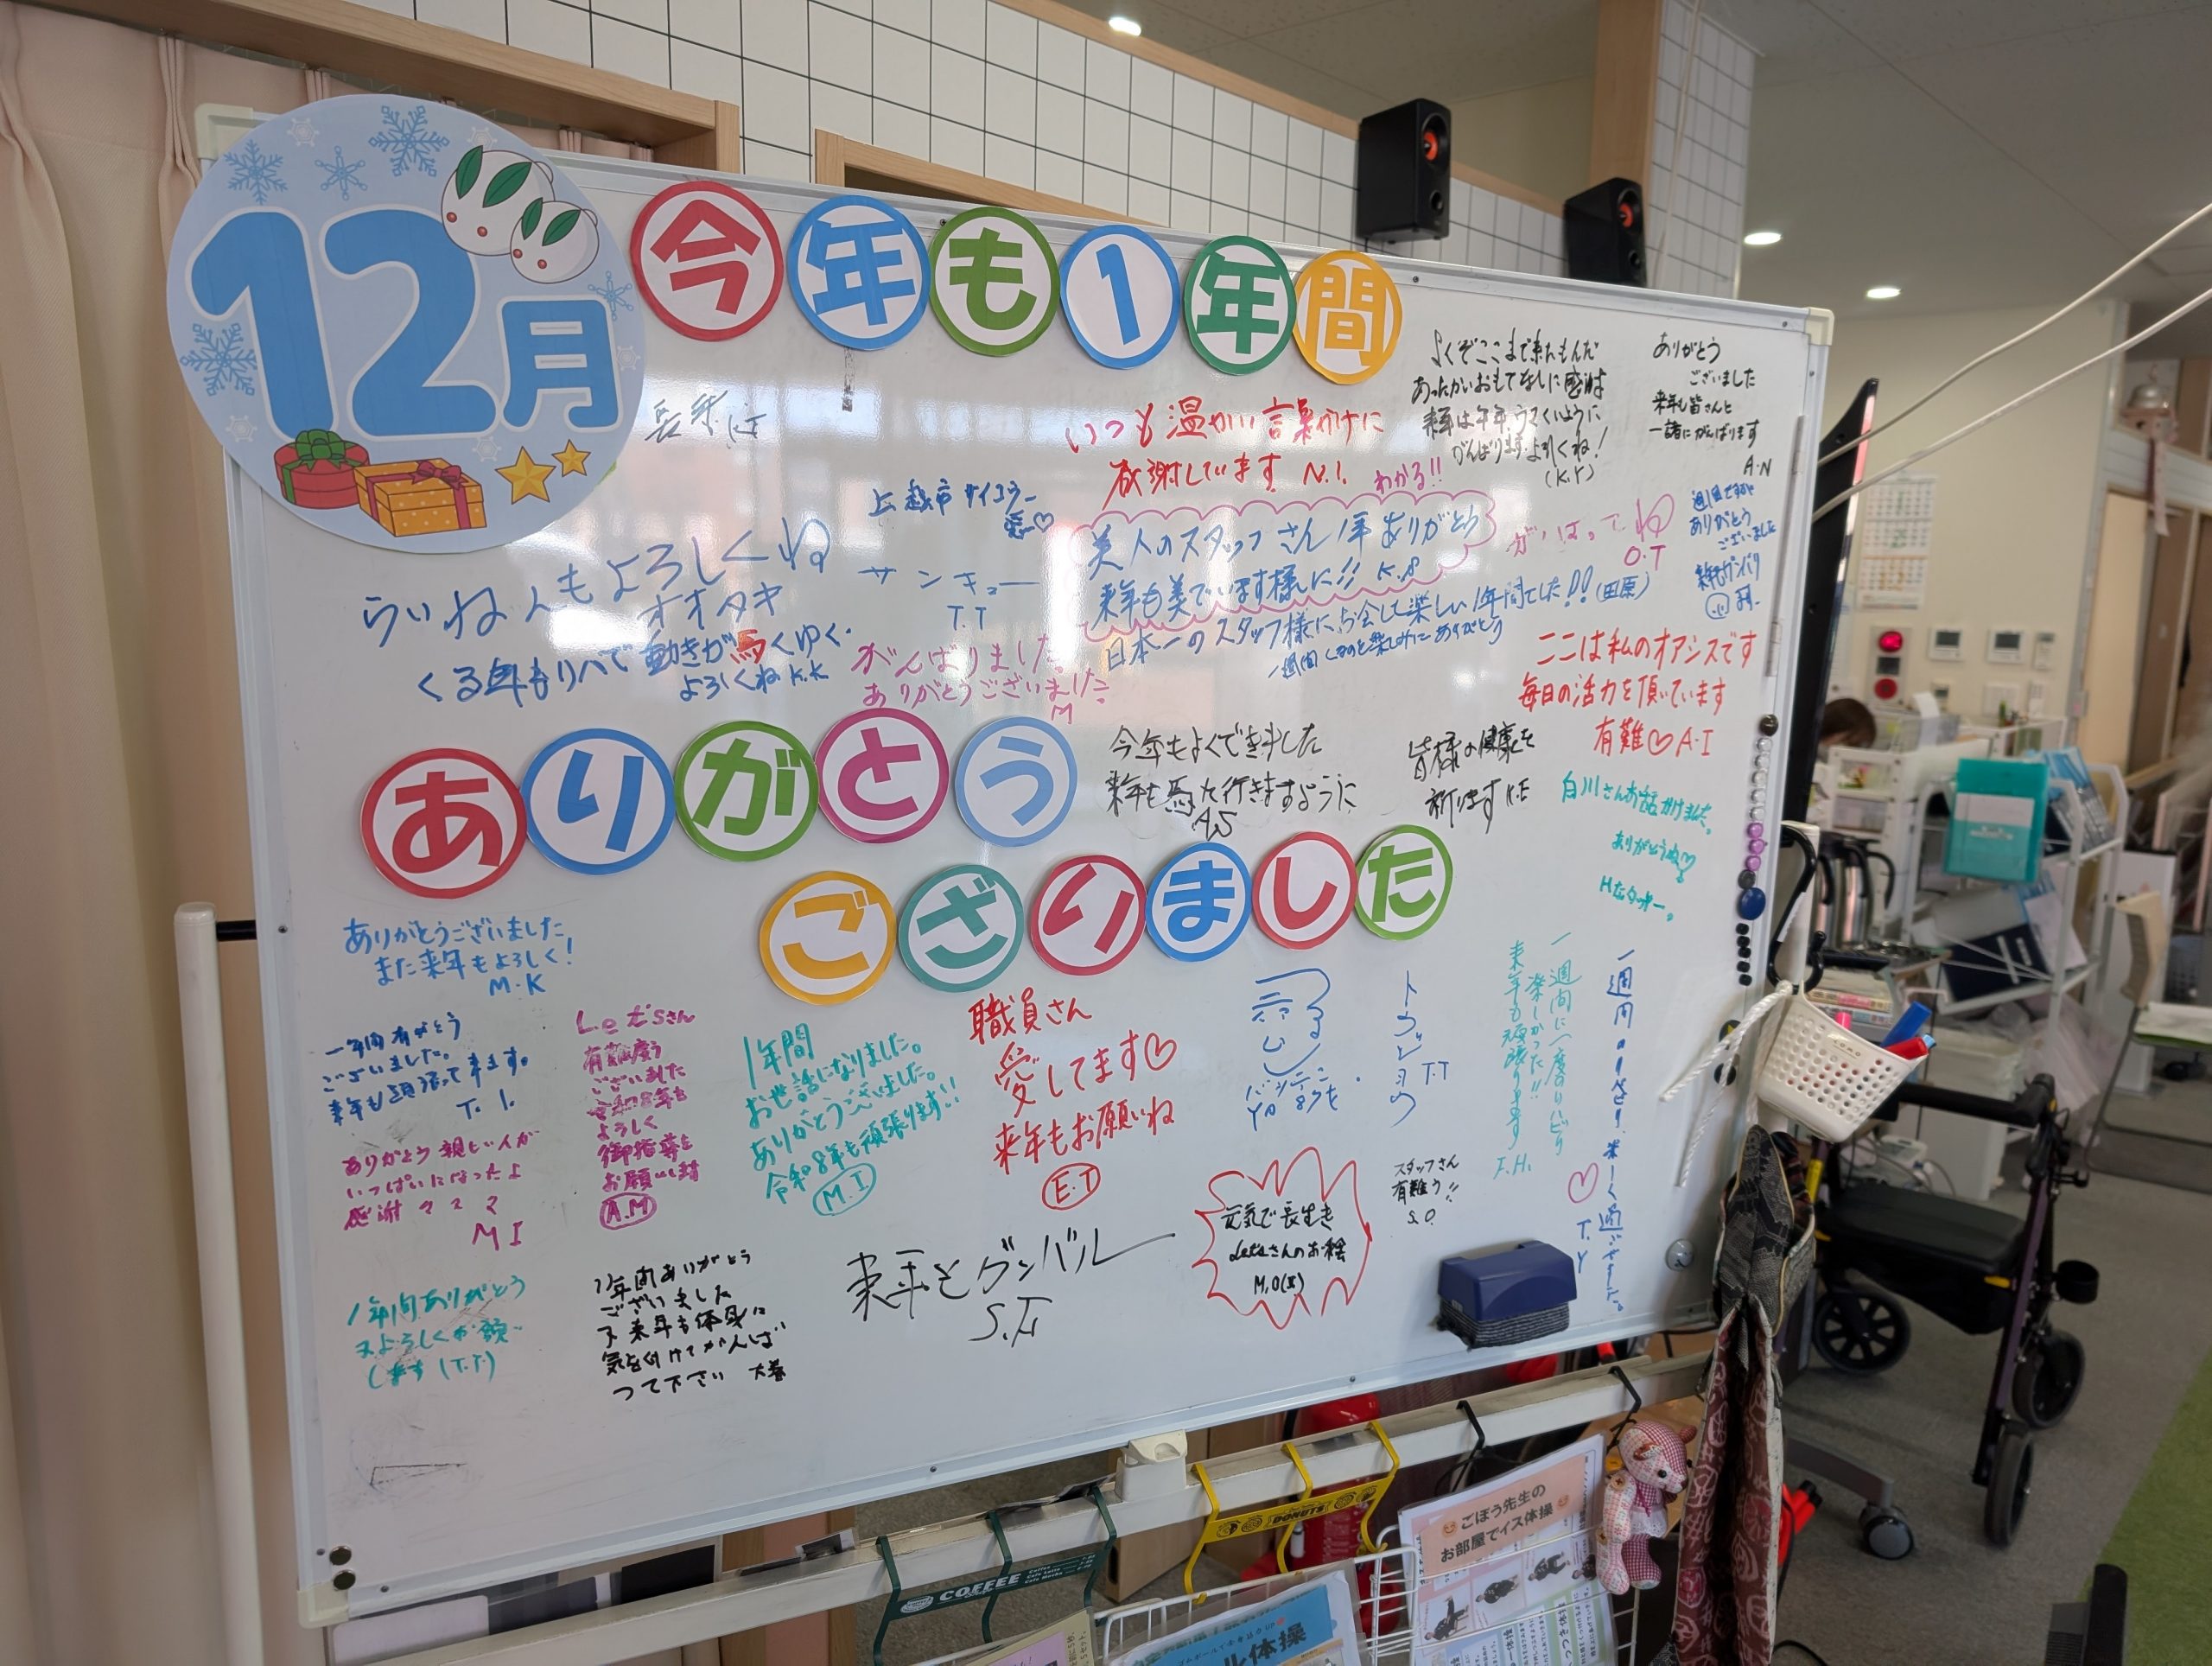 12月
今年も1年間
ありがとう
ござりました
よくぞここまで来たもんだ
あったかいおもてなしに感謝
来年は午年、ウマくいくように
がんばります、よろしくね!
(K.Y)
ありがとう
ございました
来年も皆さんと
一緒にがんばります
A.N
いつも温かい言葉かけに
感謝しています N.I.
わかる!!
美人のスタッフさん1年ありがとう
来年も美でいます様に!! K.S
がんばってね
O.T
ありがとう
ございました
上越市 サイコウー
愛〜♡
サンキュー
T.T
らいねんもよろしくね
オオタキ
くる年もリハで動きが馬くゆく.
よろしくね K.K
がんばりました。
ありがとうございました
M
日本一のスタッフ様にお会して楽しい1年間でした!!(田原)
ここは私のオアシスです
毎日の活力を頂いています
有難♡A・I
今年もよくできました
来年も馬た行きますように
A,S
皆様の健康を
祈ります K.E
白川さんお話かけました。
ありがとうね♡
ありがとうございました
また来年もよろしく!
M・K
一年間有がとう
ございました。
来年も頑張って来ます。
T. I.
Let'sさん
有難度う
ございました
令和8年も
よろしく
御指導を
お願いします
A.M
1年間
お世話になりました。
ありがとうございました。
令和8年も頑張ります!!
M.I
職員さん
愛してます♡
来年もお願いね
E.T
T.T
一週間に一度のリハビリ
楽しかった!!
来年も頑張ります
F.H.
楽しく過ごせました。
♡
T.Y
ありがとう 親しい人が
いっぱいになったよ
感謝
M I
1年間ありがとう
又よろしくお願い
します (T.T)
1年間ありがとう
ございました
又来年も体身に
気を付けてがんば
って下さい 大巻
来年もガンバル
元気で長生き
Let'sさんのお絵
スタッフさん
有難う!!
S.O
COFFEE
DONUTS
ごぼう先生の
お部屋でイス体操
体操